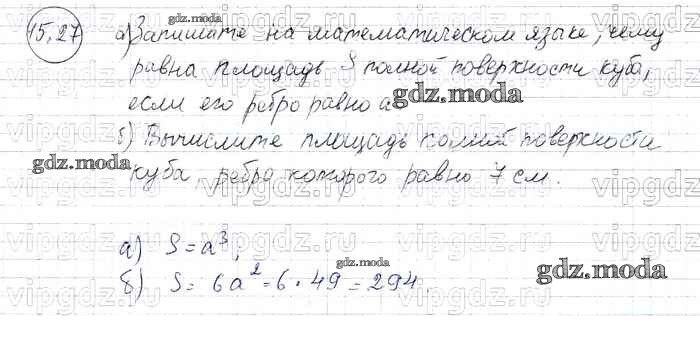 15.27 а) Запишите на математическом языке, чему
равна площадь S полной поверхности куба,
если его ребро равно а.
б) Вычислите площадь полной поверхности
куба, ребро которого равно 7 см.
а) S = a³;
б) S = 6a² = 6 · 49 = 294.
gdz.moda
gdz.moda
gdz.moda
gdz.moda
gdz.moda
gdz.moda
vipgdz.ru